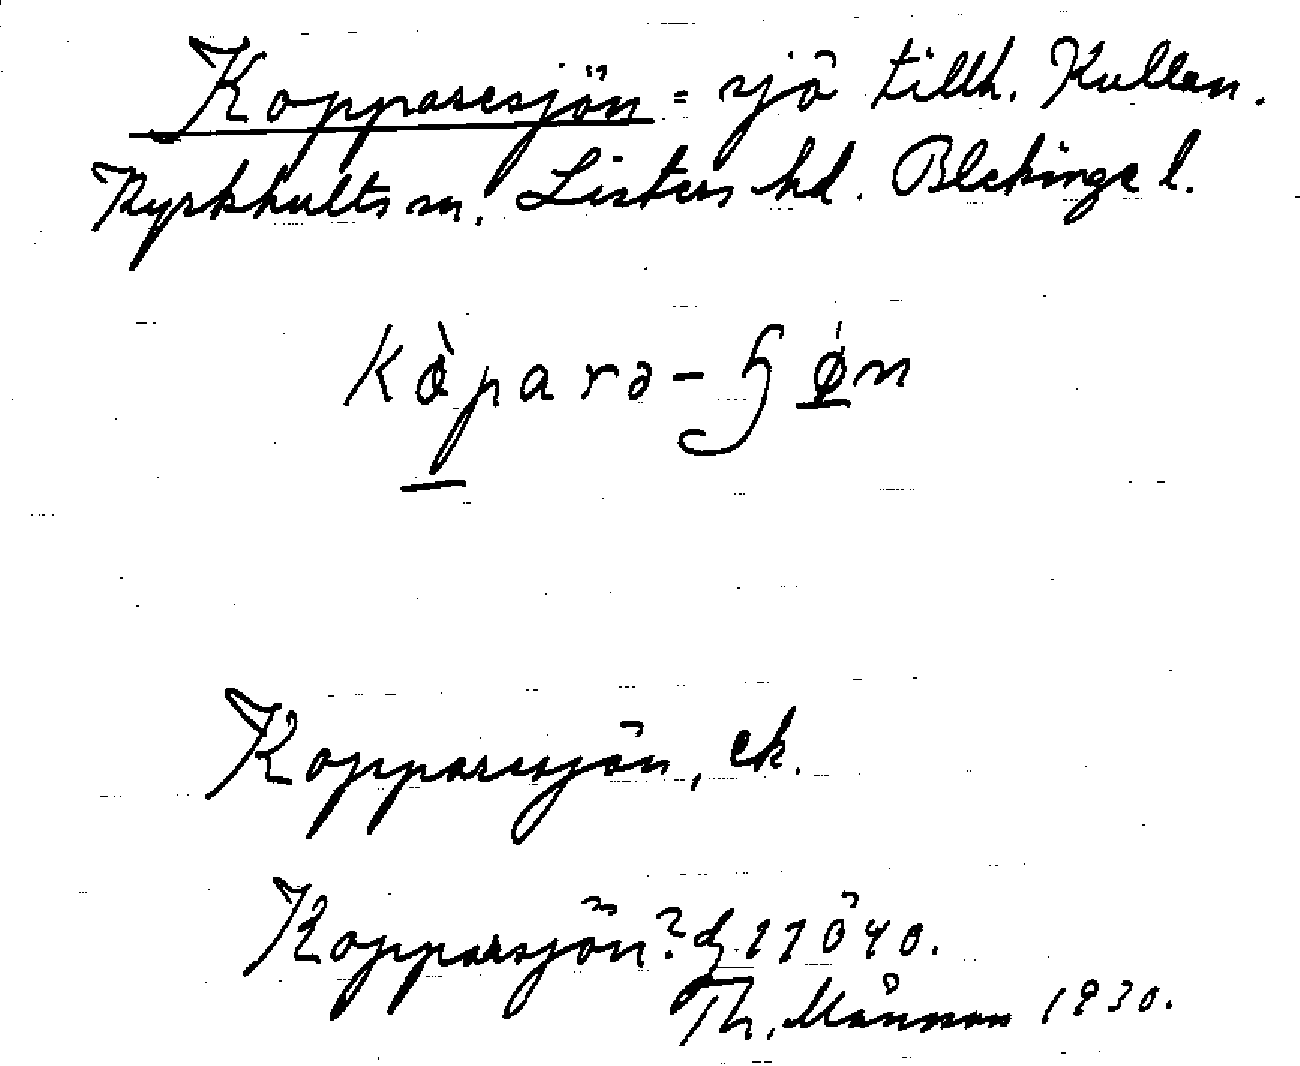 Kopparesjön = sjö tillh. Kullen.
Kyrkhults sn. Listers hd. Blekinge l.
kòparə-ɧǿn
Kopparesjön, ek.
Kopparsjön? 1940.
Th. Månsson 1930.